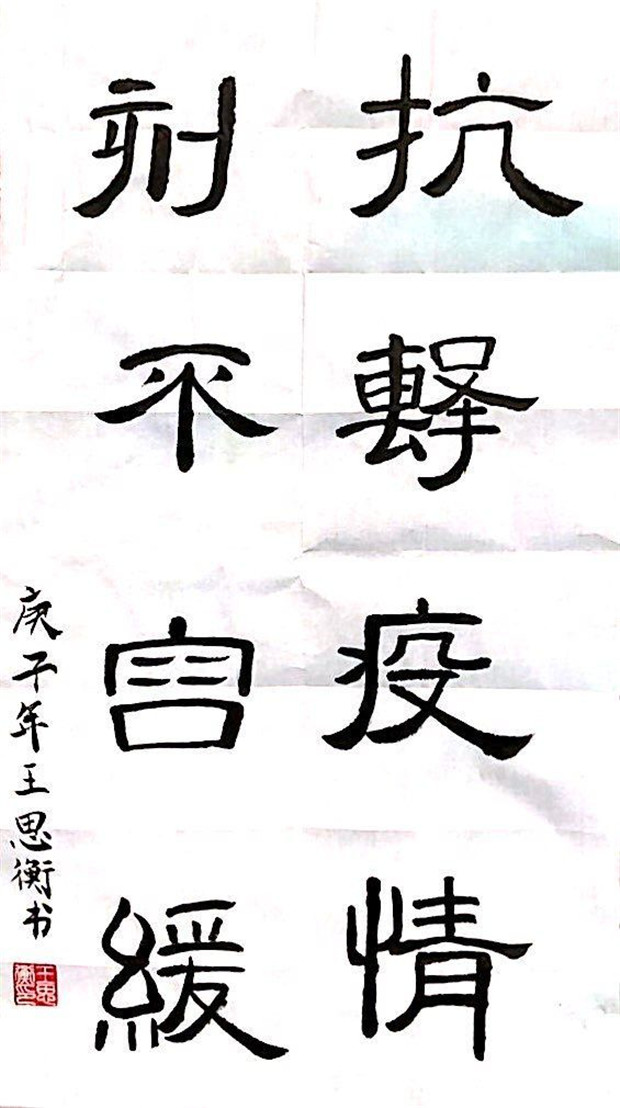 抗擊疫情
刻不容緩
庚子年王思衡书
王思衡印